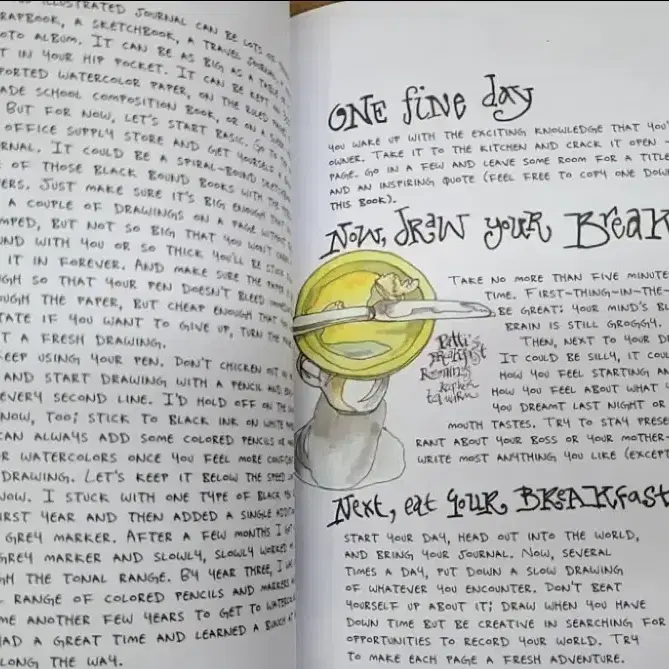 ILLUSTRATED JOURNAL CAN BE LOTS OF
SCRAPBOOK, A SKETCHBOOK, A TRAVEL JOURNAL
PHOTO ALBUM. IT CAN BE AS BIG AS A TABLE
IT IN YOUR HIP POCKET. IT CAN BE KEPT ON
PORTED WATERCOLOR PAPER, ON THE RULED
ADE SCHOOL COMPOSITION BOOK, OR ON A
BUT FOR NOW, LET'S START BASIC. GO TO
OFFICE SUPPLY STORE AND GET YOURSELF A
RNAL. IT COULD BE A SPIRAL-BOUND
OF THOSE BLACK BOUND BOOKS WITH THE
ERS. JUST MAKE SURE IT'S BIG ENOUGH THAT
A COUPLE OF DRAWINGS ON A PAGE WITHOUT
MPED, BUT NOT SO BIG THAT YOU WON'T
ND WITH YOU OR SO THICK YOU'LL BE STUCK
IT IN FOREVER. AND MAKE SURE THE PAPER
GH SO THAT YOUR PEN DOESN'T BLEED
OUGH THE PAPER, BUT CHEAP ENOUGH THAT
TATE IF YOU WANT TO GIVE UP, TURN THE
T A FRESH DRAWING.
KEEP USING YOUR PEN. DON'T CHICKEN OUT
AND START DRAWING WITH A PENCIL AND
EVERY SECOND LINE. I'D HOLD OFF ON
NOW, TOO; STICK TO BLACK INK ON WHITE
CAN ALWAYS ADD SOME COLORED PENCILS OR
R WATERCOLORS ONCE YOU FEEL MORE
DRAWING. LET'S KEEP IT BELOW THE SPEED
NOW. I STUCK WITH ONE TYPE OF BLACK
IRST YEAR AND THEN ADDED A SINGLE
GREY MARKER. AFTER A FEW MONTHS I
GREY MARKER AND SLOWLY, SLOWLY WORKED
GH THE TONAL RANGE. BY YEAR THREE, I
RANGE OF COLORED PENCILS AND MARKERS
ME ANOTHER FEW YEARS TO GET TO
HAD A GREAT TIME AND LEARNED A BUNCH
LONG THE WAY.
ONE fine day
YOU WAKE UP WITH THE EXCITING KNOWLEDGE THAT YOU'
OWNER. TAKE IT TO THE KITCHEN AND CRACK IT OPEN -
PAGE. GO IN A FEW AND LEAVE SOME ROOM FOR A TITLE
AND AN INSPIRING QUOTE (FEEL FREE TO COPY ONE DOWN
THIS BOOK).
Now, draw your Break
TAKE NO MORE THAN FIVE MINUTE
TIME. FIRST-THING-IN-THE-
BE GREAT: YOUR MIND'S BL
BRAIN IS STILL GROGGY.
THEN, NEXT TO YOUR DR
IT COULD BE SILLY, IT COUL
HOW YOU FEEL STARTING AN
HOW YOU FEEL ABOUT WHAT
YOU DREAMT LAST NIGHT OR
MOUTH TASTES. TRY TO STAY PRESE
RANT ABOUT YOUR BOSS OR YOUR MOTHER-
WRITE MOST ANYTHING YOU LIKE (EXCEPT
Patti's
Breakfast
Next, eat your BREAKfast
START YOUR DAY, HEAD OUT INTO THE WORLD,
AND BRING YOUR JOURNAL. NOW, SEVERAL
TIMES A DAY, PUT DOWN A SLOW DRAWING
OF WHATEVER YOU ENCOUNTER. DON'T BEAT
YOURSELF UP ABOUT IT; DRAW WHEN YOU HAVE
DOWN TIME BUT BE CREATIVE IN SEARCHING FOR
OPPORTUNITIES TO RECORD YOUR WORLD. TRY
TO MAKE EACH PAGE A FRESH ADVENTURE.